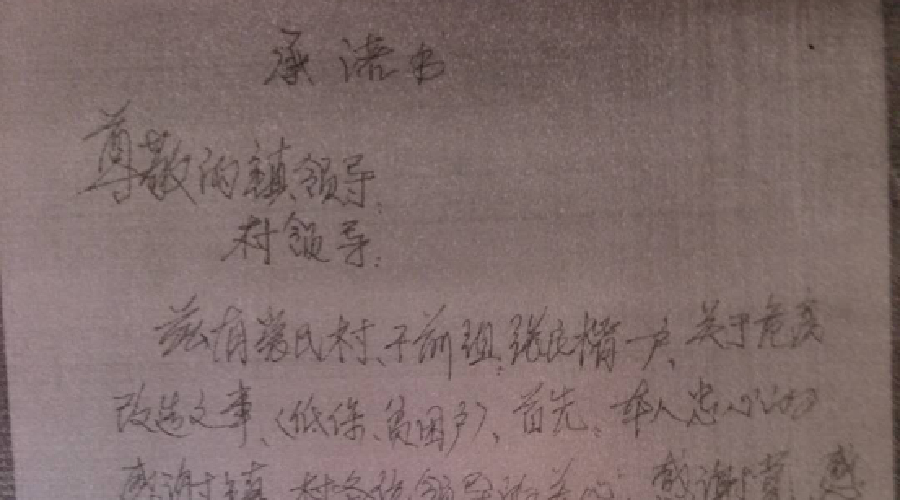 承诺书
尊敬的镇领导
村领导:
兹有裴氏村、于前组,张良楷一户、关于危房
改造文章、(低保、贫困户)、首先、本人忠心的
感谢镇、村各位领导的关心,感谢党、感